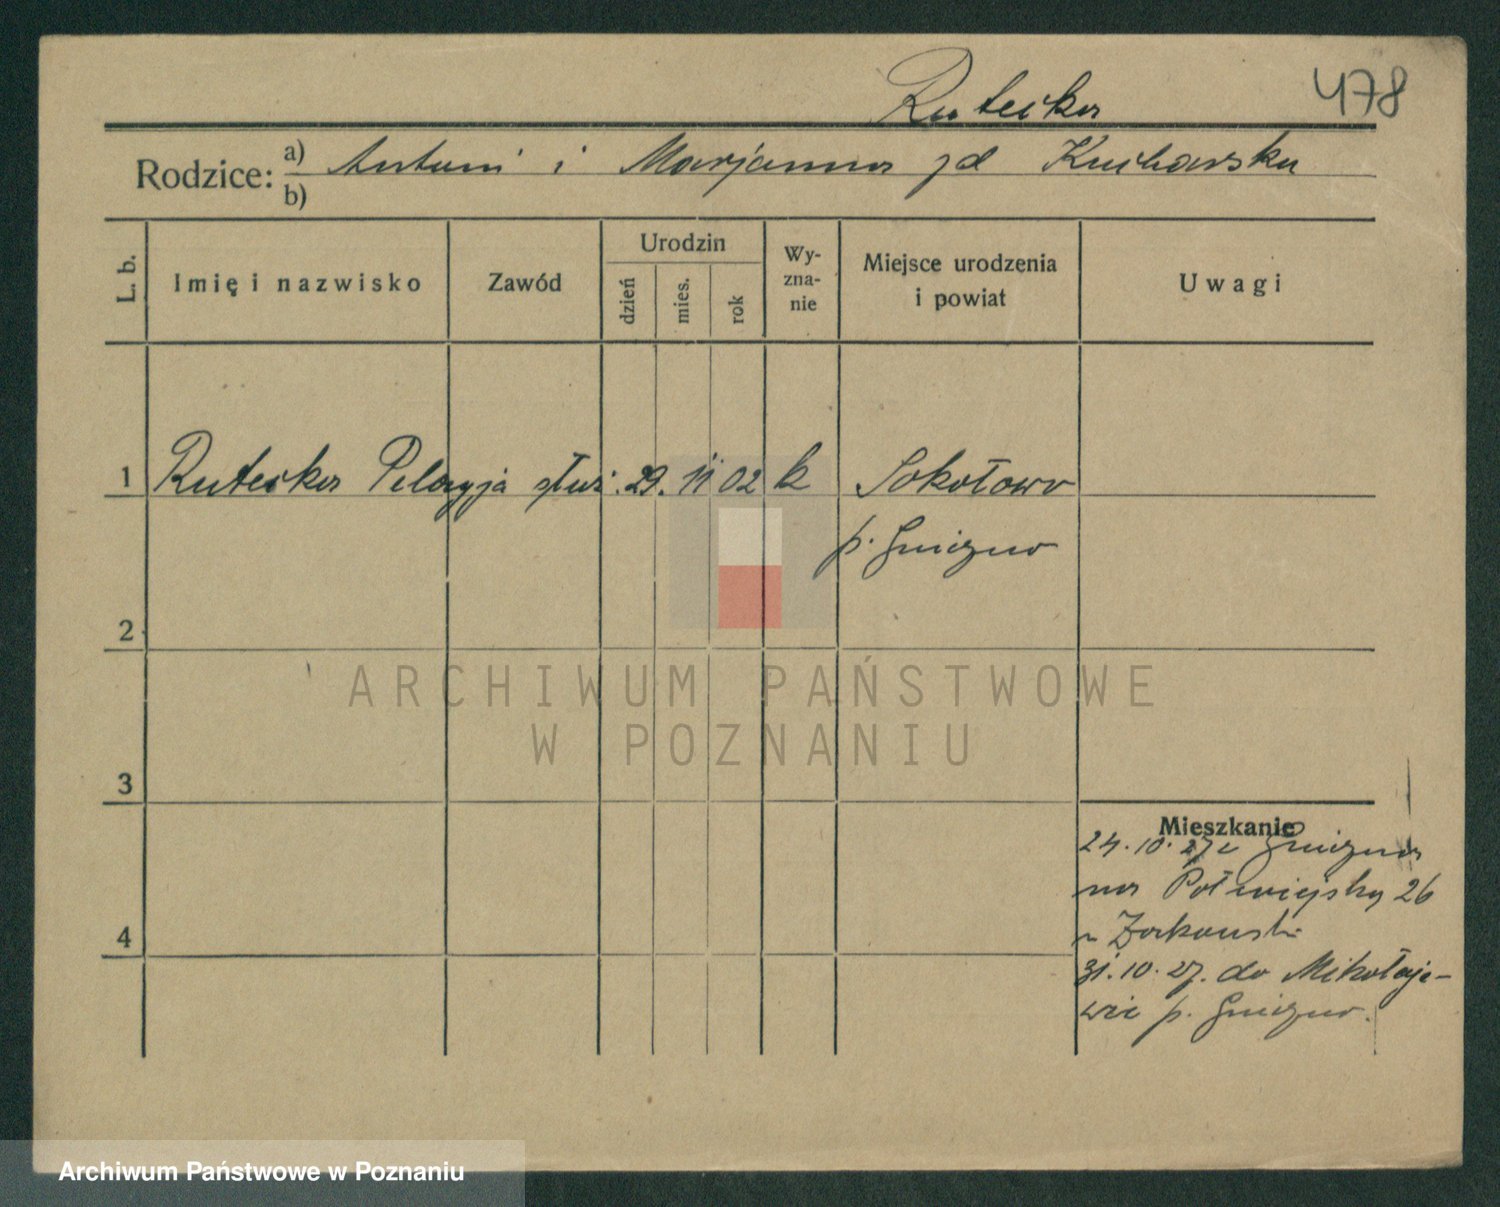 Rutecka 478
Rodzice: a) Antoni i Marjanna zd Kucharska
b)
L. b. Imię i nazwisko Zawód Urodzin dzień mies. rok Wyzna-nie Miejsce urodzenia i powiat Uwagi
1 Rutecka Pelagja służ. 29. 11 02 k Sokołowo
p. Gniezno
2
ARCHIWUM PAŃSTWOWE
W POZNANIU
3
Mieszkanie
24.10.27 z Gniezna
na Półwiejską 26
4
31.10.27. do Mikołaje-
wic p. Gniezno.
Archiwum Państwowe w Poznaniu